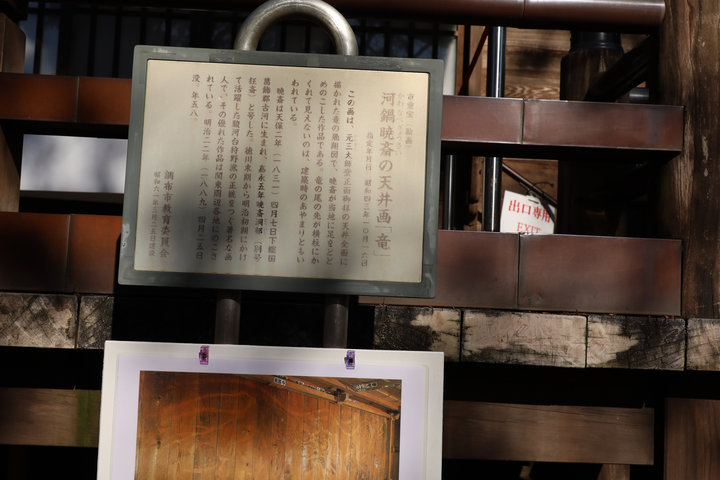 市重宝(絵画)
かわなべぎょうさい
河鍋暁斎の天井画「竜」
指定年月日 昭和四三年一〇月一六日
この画は、元三大師登正面御拝の天井全面に
描かれた竜の飛翔図で、暁斎が当地に足をとど
めのこした作品である。竜の尾の先が横柱にか
くれて見えないのは、建築時のあやまりともい
われている。
暁斎は天保二年(一八三一)四月七日下総国
葛飾郡古河に生まれ、嘉永五年暁斎洞郁(別号
狂斎)と号した。徳川末期から明治初期にかけ
て活躍した駿河台狩野派の正統をつぐ著名な画
人で、その優れた作品は関東周辺各地にのこさ
れている。明治二二年(一八八九)四月二五日
没、年五八。
調布市教育委員会
昭和六一年三月二五日建設
出口専用
EXIT